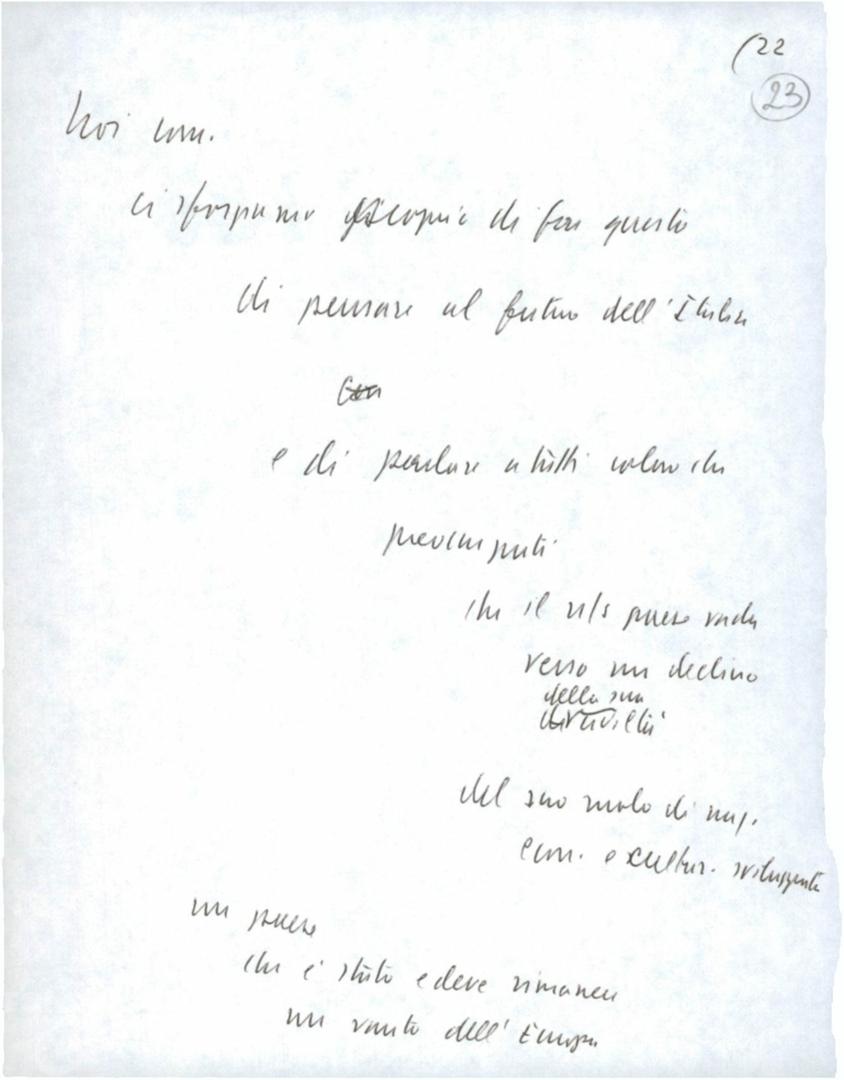 (22
23
Noi com.
ci sforziamo di fare questo
di pensare al futuro dell'Italia
Con
e di parlare a tutti coloro che
preoccupati
che il ns/s paese vada
verso un declino
della sua
civiltà
del suo ruolo di naz.
econ. e cultur. sviluppata
un paese
che è stato e deve rimanere
un vanto dell'Europa